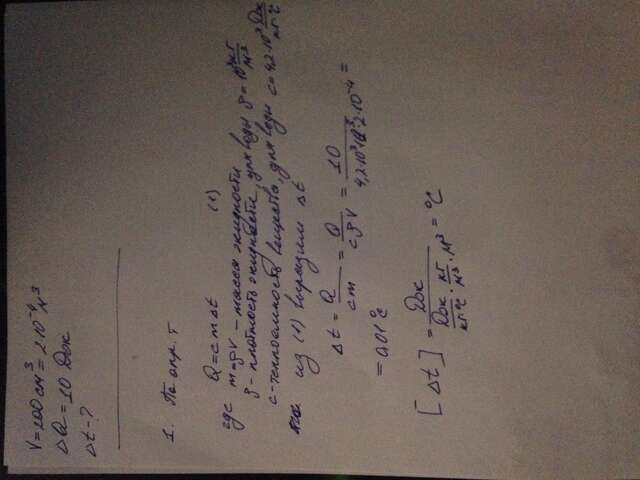 V = 200 см³ = 2·10⁻⁴ м³
ΔQ = 10 Дж
Δt - ?
1. По опр. T
Q = cmΔt (1)
где m = ρV – масса жидкости
ρ – плотность жидкости, для воды ρ = 10³ кг/м³
c – теплоемкость вещества, для воды c = 4,2·10³ Дж/кг·°C
из (1) выразим Δt
Δt = Q/cm = Q/cρV = 10/4,2·10³·10³·2·10⁻⁴ =
= 0,01°C
[Δt] = Дж/Дж/кг·°C · кг/м³ · м³ = °C